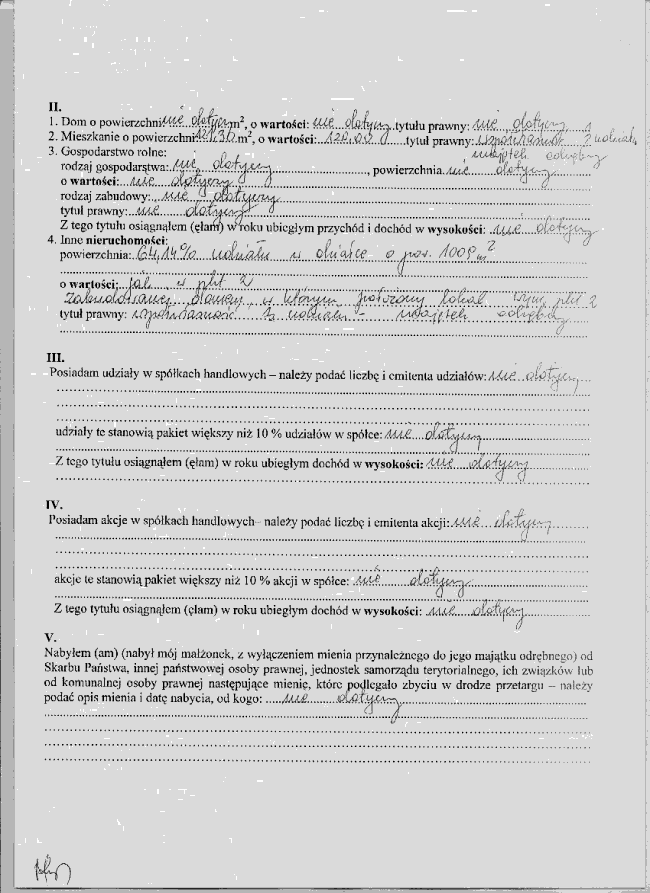 II.
1. Dom o powierzchni: nie dotyczy m², o wartości: nie dotyczy tytułu prawny: nie dotyczy
2. Mieszkanie o powierzchni: m², o wartości: tytuł prawny: współwłasność z udziału,
majątek odrębny
3. Gospodarstwo rolne:
rodzaj gospodarstwa: nie dotyczy, powierzchnia nie dotyczy
o wartości: nie dotyczy
rodzaj zabudowy: nie dotyczy
tytuł prawny: nie dotyczy
Z tego tytułu osiągnąłem (ęłam) w roku ubiegłym przychód i dochód w wysokości: nie dotyczy
4. Inne nieruchomości:
powierzchnia: 64,14% udziału w działce o pow. 1009 m²
o wartości: jak w pkt 2
zabudowanej domem, w którym położony lokal wym. pkt 2
tytuł prawny: współwłasność z udziału - majątek odrębny
III.
Posiadam udziały w spółkach handlowych – należy podać liczbę i emitenta udziałów: nie dotyczy
udziały te stanowią pakiet większy niż 10 % udziałów w spółce: nie dotyczy
Z tego tytułu osiągnąłem (ęłam) w roku ubiegłym dochód w wysokości: nie dotyczy
IV.
Posiadam akcje w spółkach handlowych– należy podać liczbę i emitenta akcji: nie dotyczy
akcje te stanowią pakiet większy niż 10 % akcji w spółce: nie dotyczy
Z tego tytułu osiągnąłem (ęłam) w roku ubiegłym dochód w wysokości: nie dotyczy
V.
Nabyłem (am) (nabył mój małżonek, z wyłączeniem mienia przynależnego do jego majątku odrębnego) od
Skarbu Państwa, innej państwowej osoby prawnej, jednostek samorządu terytorialnego, ich związków lub
od komunalnej osoby prawnej następujące mienie, które podlegało zbyciu w drodze przetargu – należy
podać opis mienia i datę nabycia, od kogo: nie dotyczy